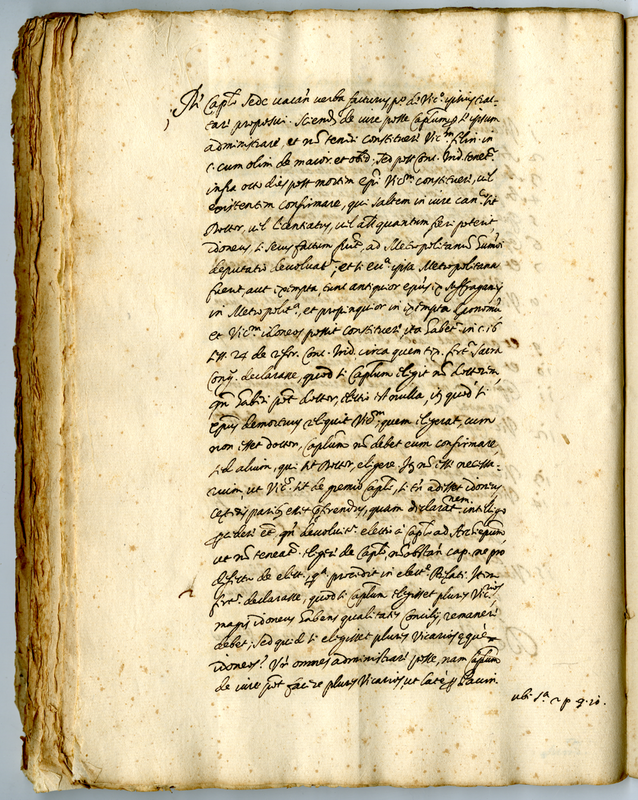 In Capli sede vacan verba facturus p.º de Vic.º ipsius trac-
tare proposui. Sciend. de iure posse Caplum p se ipsum
administrare, et nõ teneri constituere Vic.m
c. cum olim de maior. et obed. sed post Conc. Trid. tenet.r
infra octo dies post mortem epi Vic.m constituere, vel
existentem confirmare, qui saltem in iure can.co sit
Doctor, vel licentiatus, vel aliquantum fieri poterit
idoneus, si secus factum fuerit, ad Metropolitanum
deputatio devolvat.r, et si ecc.a ipsa Metropolitana
fuerit, aut exempta tunc antiquior epus ex suffraganeis
in Metropolit.a, et propinquior in exempta Economũ
et Vic.m idoneos possit constituere, ita habet.r in c. 16
sess. 24 de refor. Conc. Trid. circa quem Sacra
Cong. declarasse, quod si Caplum elegit nõ doctorem,
qñ haberi pot doctor, electio est nulla, et quod si
epus demortuus reliquit Vic.m, quem elegerat, cum
non esset doctor, Caplum nõ debet eum confirmare,
sed alium, qui sit Doctor, eligere. Itẽ nõ esse necessa-
rium, ut Vic.s sit de gremio Capli, si tñ adisset idoneus
ceteris paribus esset preferendus, quam declarat.nem intelligo
procedere et qñ devolvit.r electio à Caplo ad Archiepum,
ut nõ teneat.r eligere de Caplo, nõ obstan. cap. ne pro
defectu de elect., q.a procedit in elect.e Prelati. Item
fuit declarasse, quod si Caplum elegisset plures Vic.rios
magis idoneus habens qualitates Concilij remanere
debet, sed quid si elegisset plures Vicarios eque
idoneos? Vr omnes administrare posse, nam Caplum
de iure pot facere plures Vicarios, ut late p Pavin.
ubi s.a 2 p. q. 10.